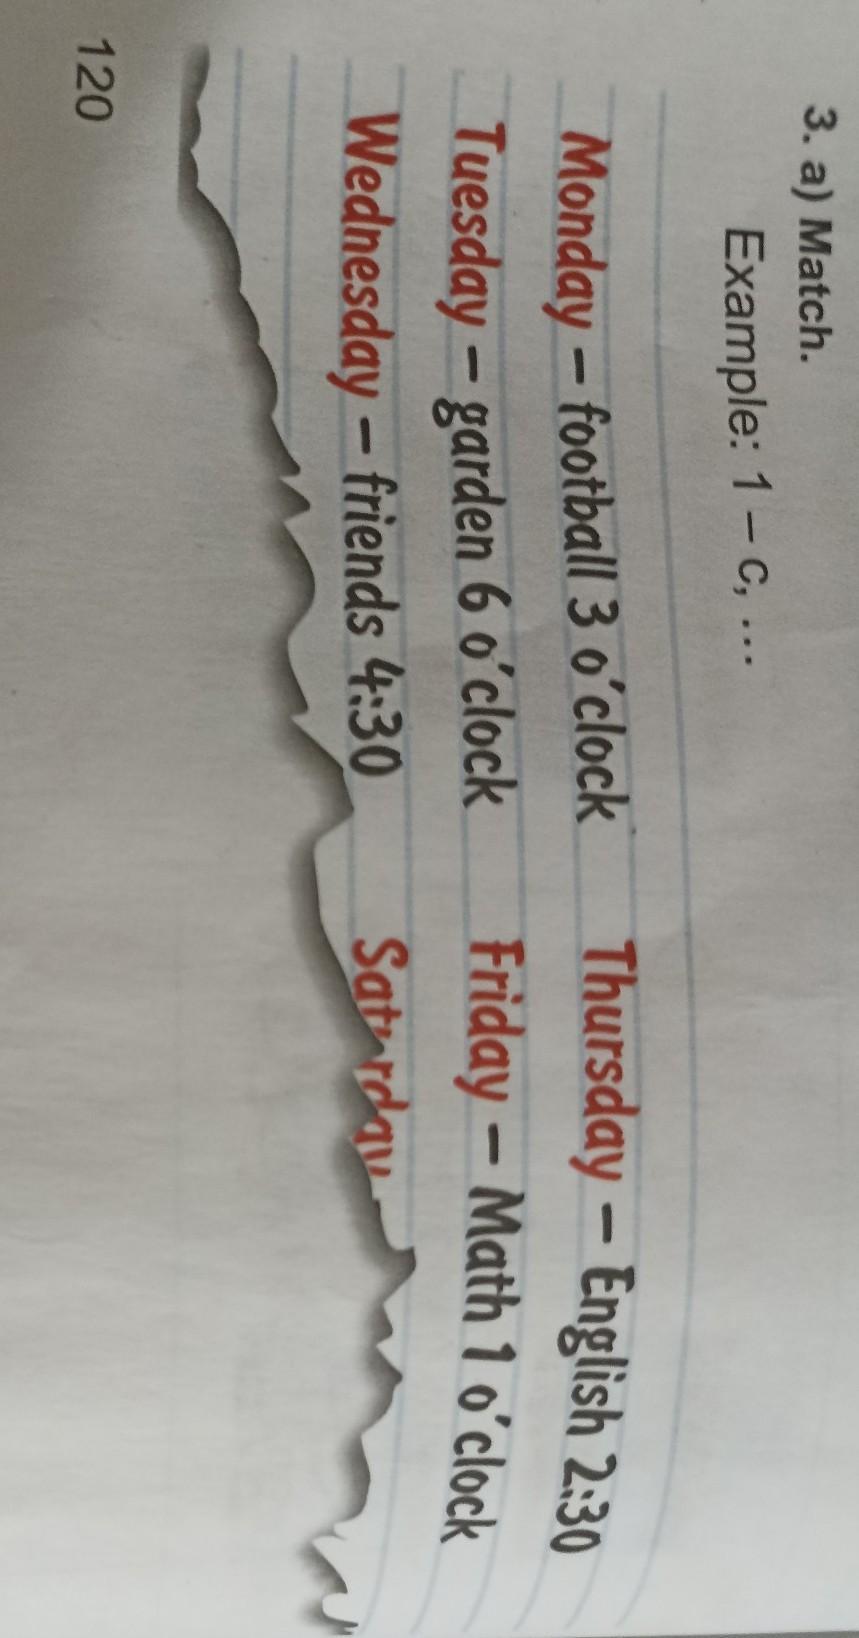 3. a) Match.
Example: 1 – c, ...
Monday – football 3 o'clock
Thursday – English 2:30
Tuesday – garden 6 o'clock
Friday – Math 1 o'clock
Wednesday – friends 4:30
Saturday
120